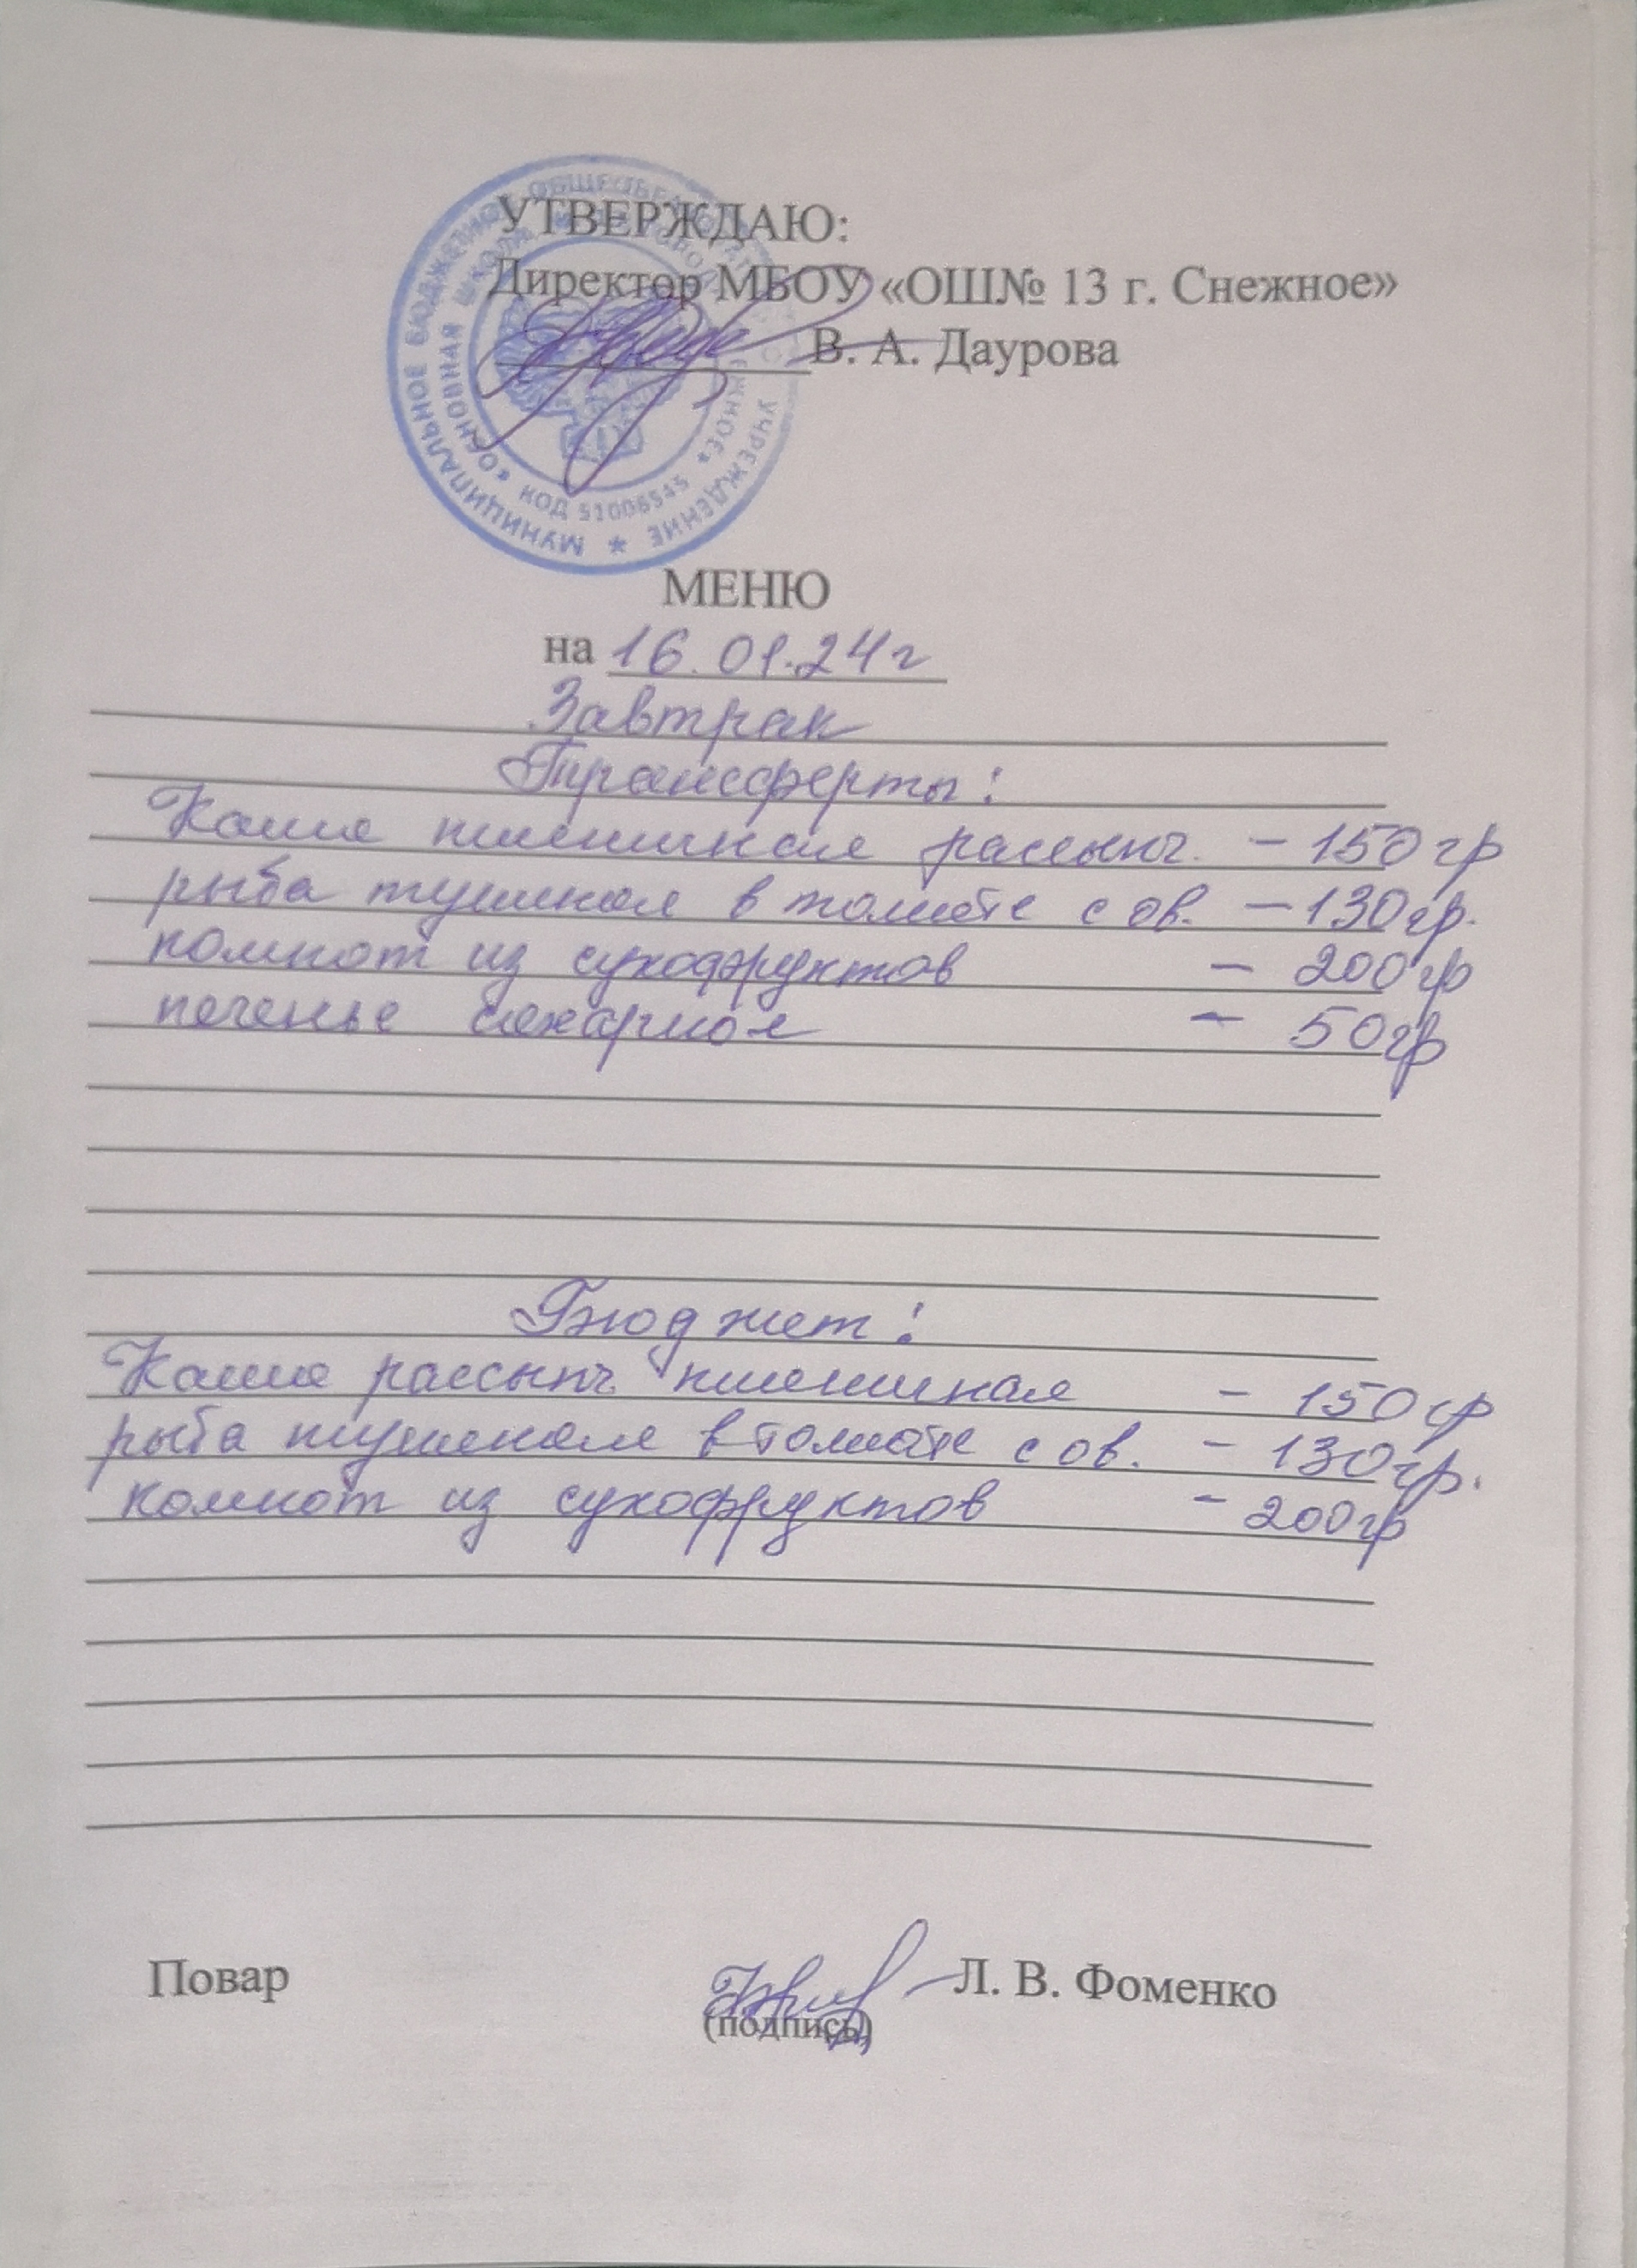 УТВЕРЖДАЮ:
Директор МБОУ «ОШ№ 13 г. Снежное»
В. А. Даурова
МУНИЦИПАЛЬНОЕ БЮДЖЕТНОЕ УЧРЕЖДЕНИЕ
«ОСНОВНАЯ ШКОЛА
КОД 51006545
МЕНЮ
на 16.01.24г
Завтрак
Трансферты:
Каша пшеничная рассыпч. - 150 гр
рыба тушеная в томате с ов. - 130гр.
компот из сухофруктов - 200гр
печенье сахарное - 50гр
Бюджет:
Каша рассыпч пшеничная - 150 гр
рыба тушеная в томате с ов. - 130гр.
компот из сухофруктов - 200гр
Повар Л. В. Фоменко
(подпись)